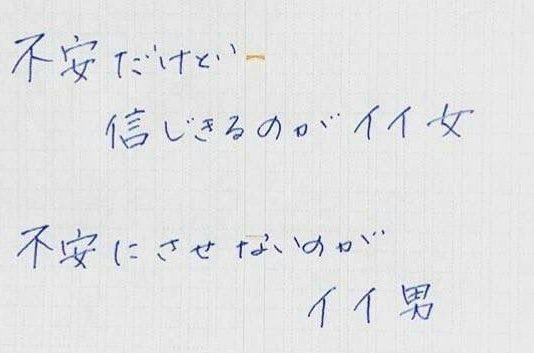 不安だけど
信じきるのがイイ女
不安にさせないのが
イイ男